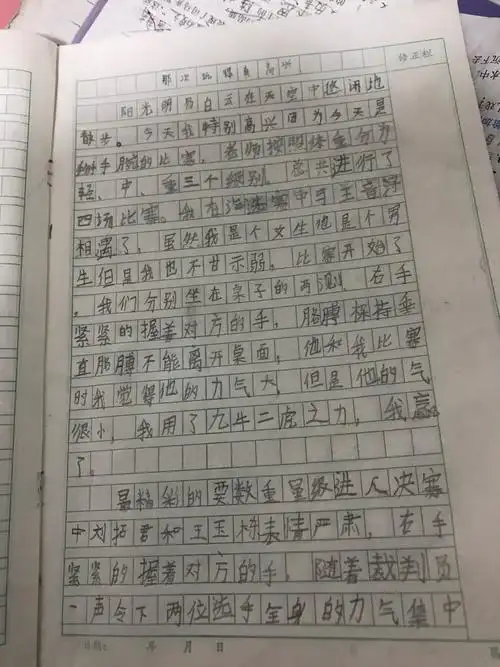 那次玩得真高兴
阳光明易白云在天空中悠闲地
散步。今天我特别高兴因为今天是
手腕的比赛。老师按照体重分为
轻、中、重三个级别。总共进行了
四场比赛。我在淘汰赛中于王音浮
相遇了。虽然我是个女生他是个男
生但是我也不甘示弱。比赛开始了
。我们分别坐在桌子的两侧。右手
紧紧的握着对方的手。胳膊保持垂
直胳膊不能离开桌面。他和我比赛
时我觉得他的力气大。但是他的气
很小。我用了九牛二虎之力。我赢
了。
最精彩的要数重量级进人决赛
中刘拓君和王玉栋表情严肃。右手
紧紧的握着对方的手。随着裁判员
一声令下两位选手全身的力气集中
修正栏
日期: 年 月 日